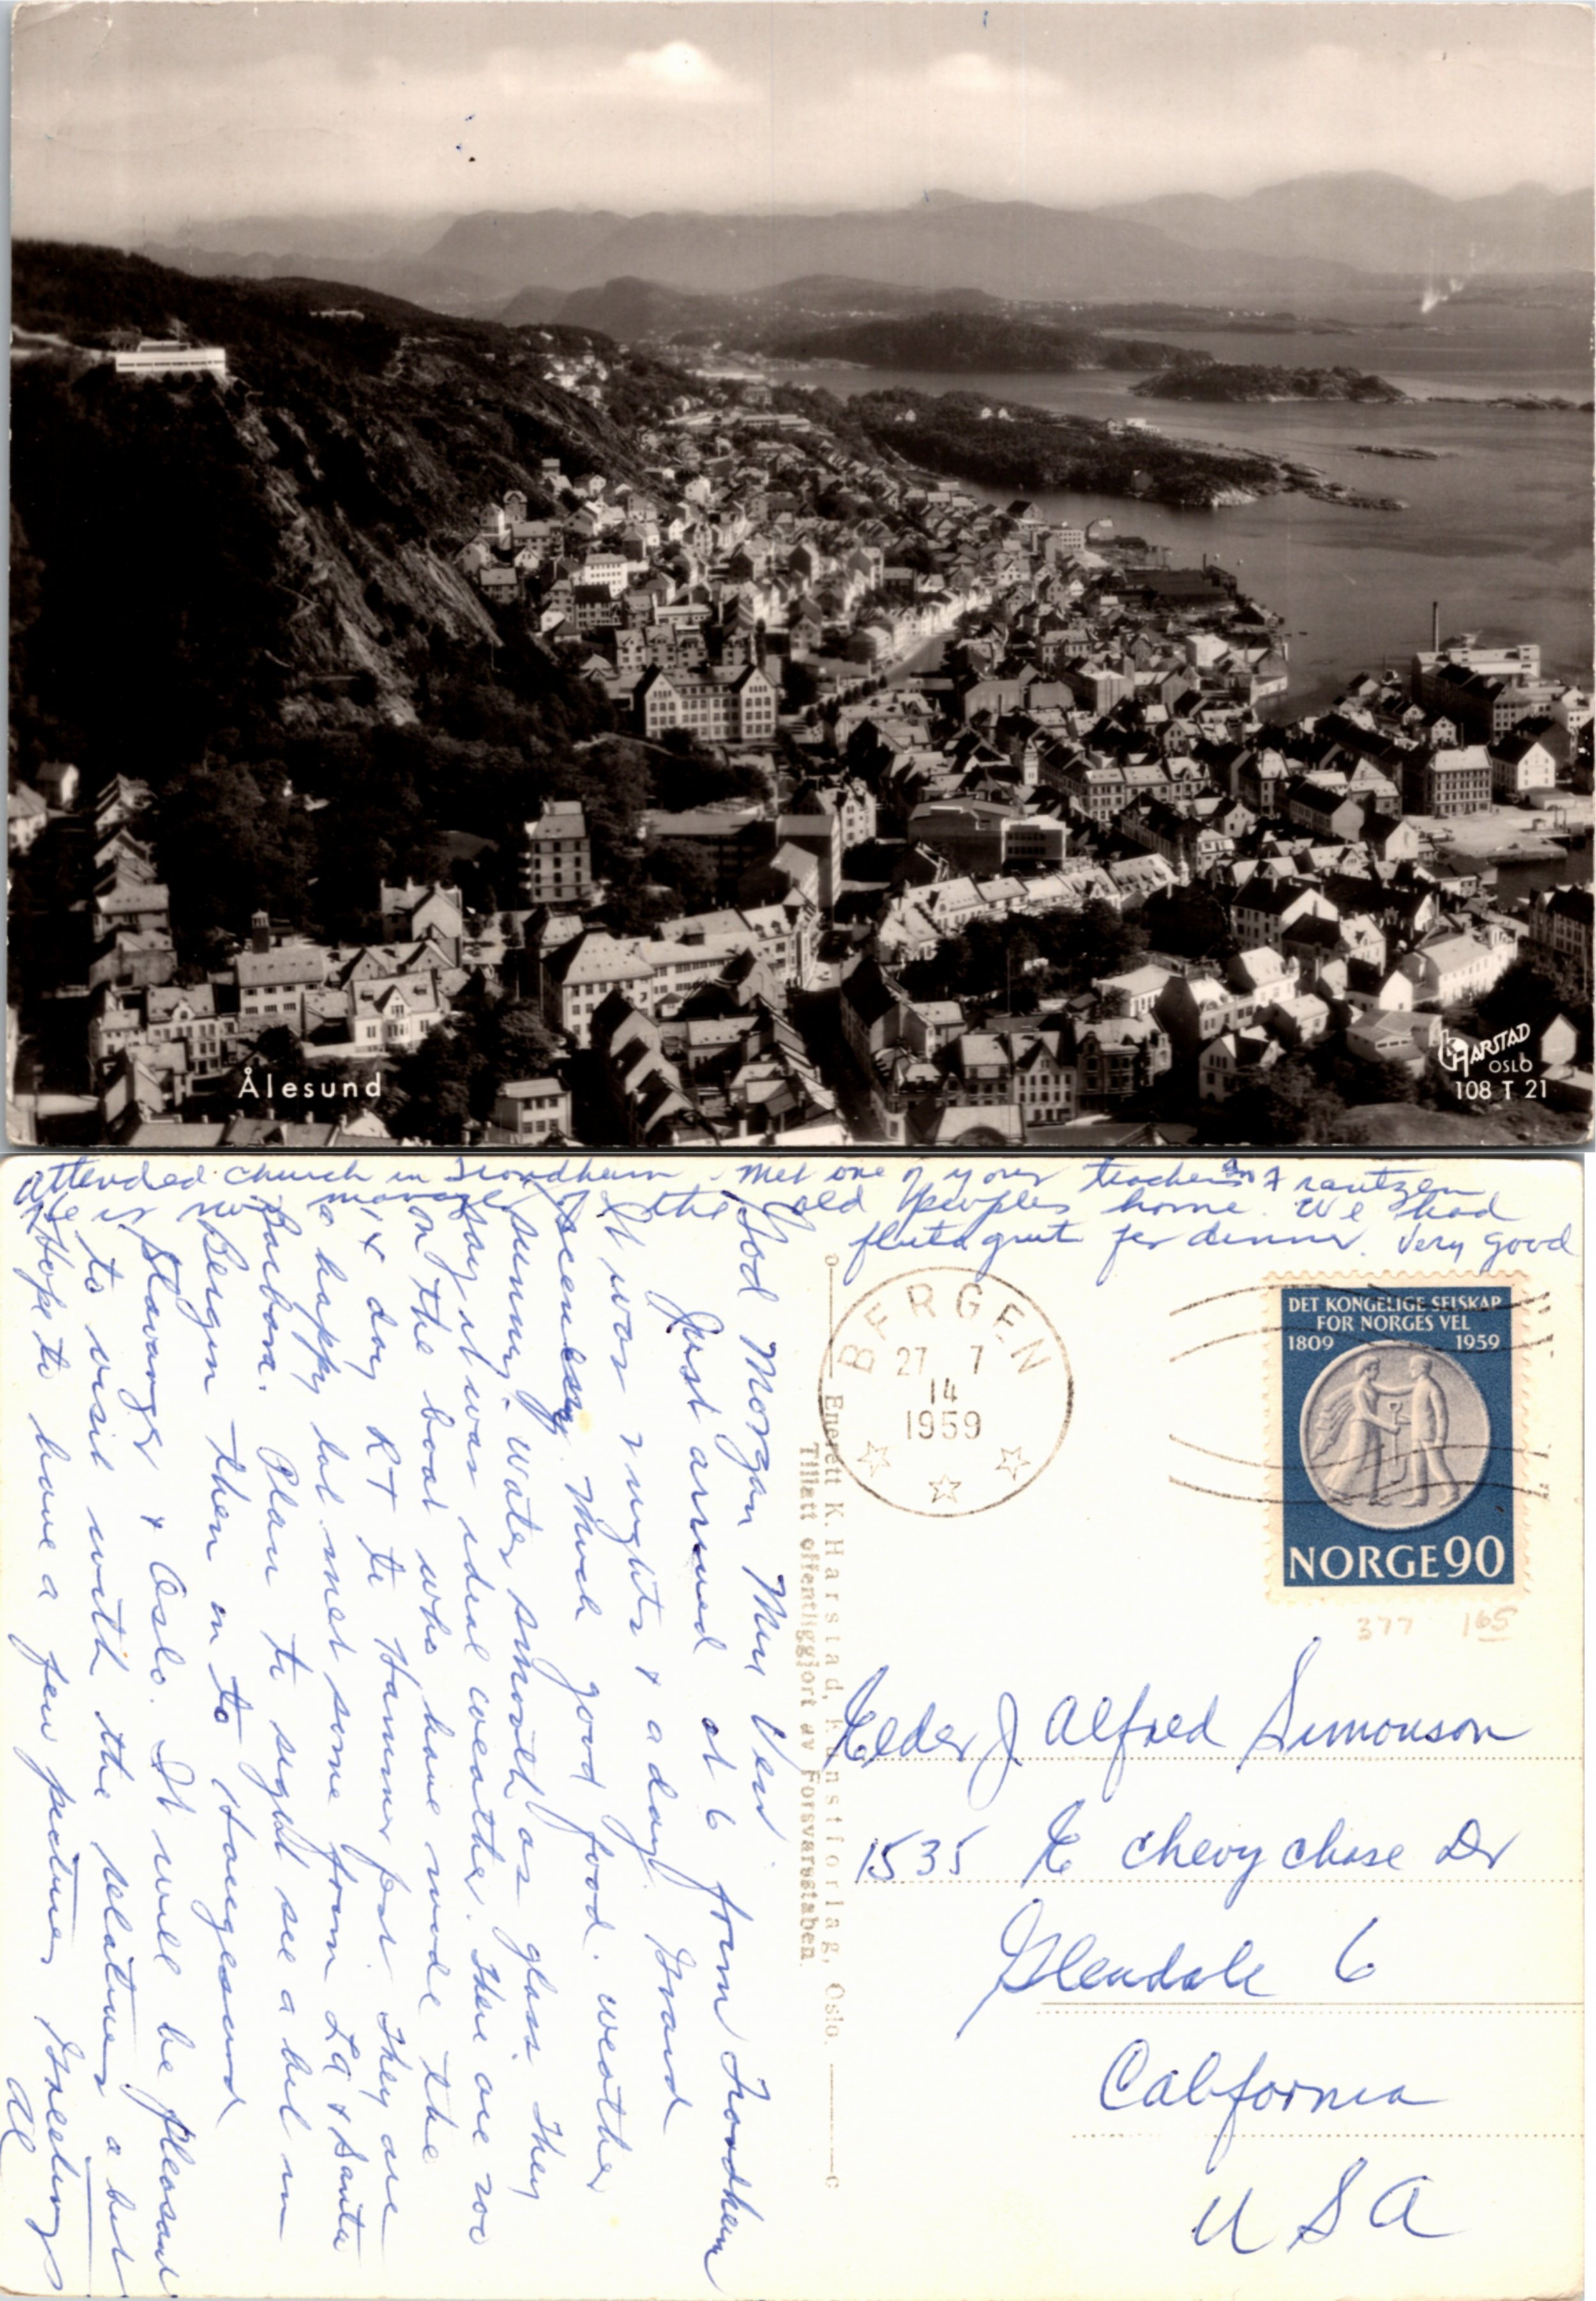 Ålesund
HARSTAD
OSLO
108 T 21
attended church in Trondheim. Met one of your teachers Frantzen
He is now manager of the old peoples home. We had
for dinner. Very good
God Morgen Min Ven
Just arrived at 6 from Trondheim
It was 2 nights & a day. Grand
scenery. Much good food. Weather
sunny. Water smooth as glass. They
say it was ideal weather. There are 200
on the boat who have made the
day RT to Hammerfest. They are
a happy lot. met some from LA & Santa
Barbara. Plan to sight see a bit in
Bergen then on to Haugesund
Stavanger & Oslo. It will be pleasant
to visit with the relatives a bit
Hope to have a few pictures Greetings
Al
Enerett K. Harstad, Kunstforlag, Oslo.
Tillatt offentliggjort av Forsvarsstaben.
BERGEN
27 7
14
1959
DET KONGELIGE SELSKAP
FOR NORGES VEL
1809 1959
NORGE 90
377 165
Elder J Alfred Simonson
1535 E Chevy Chase Dr
Glendale 6
California
USA